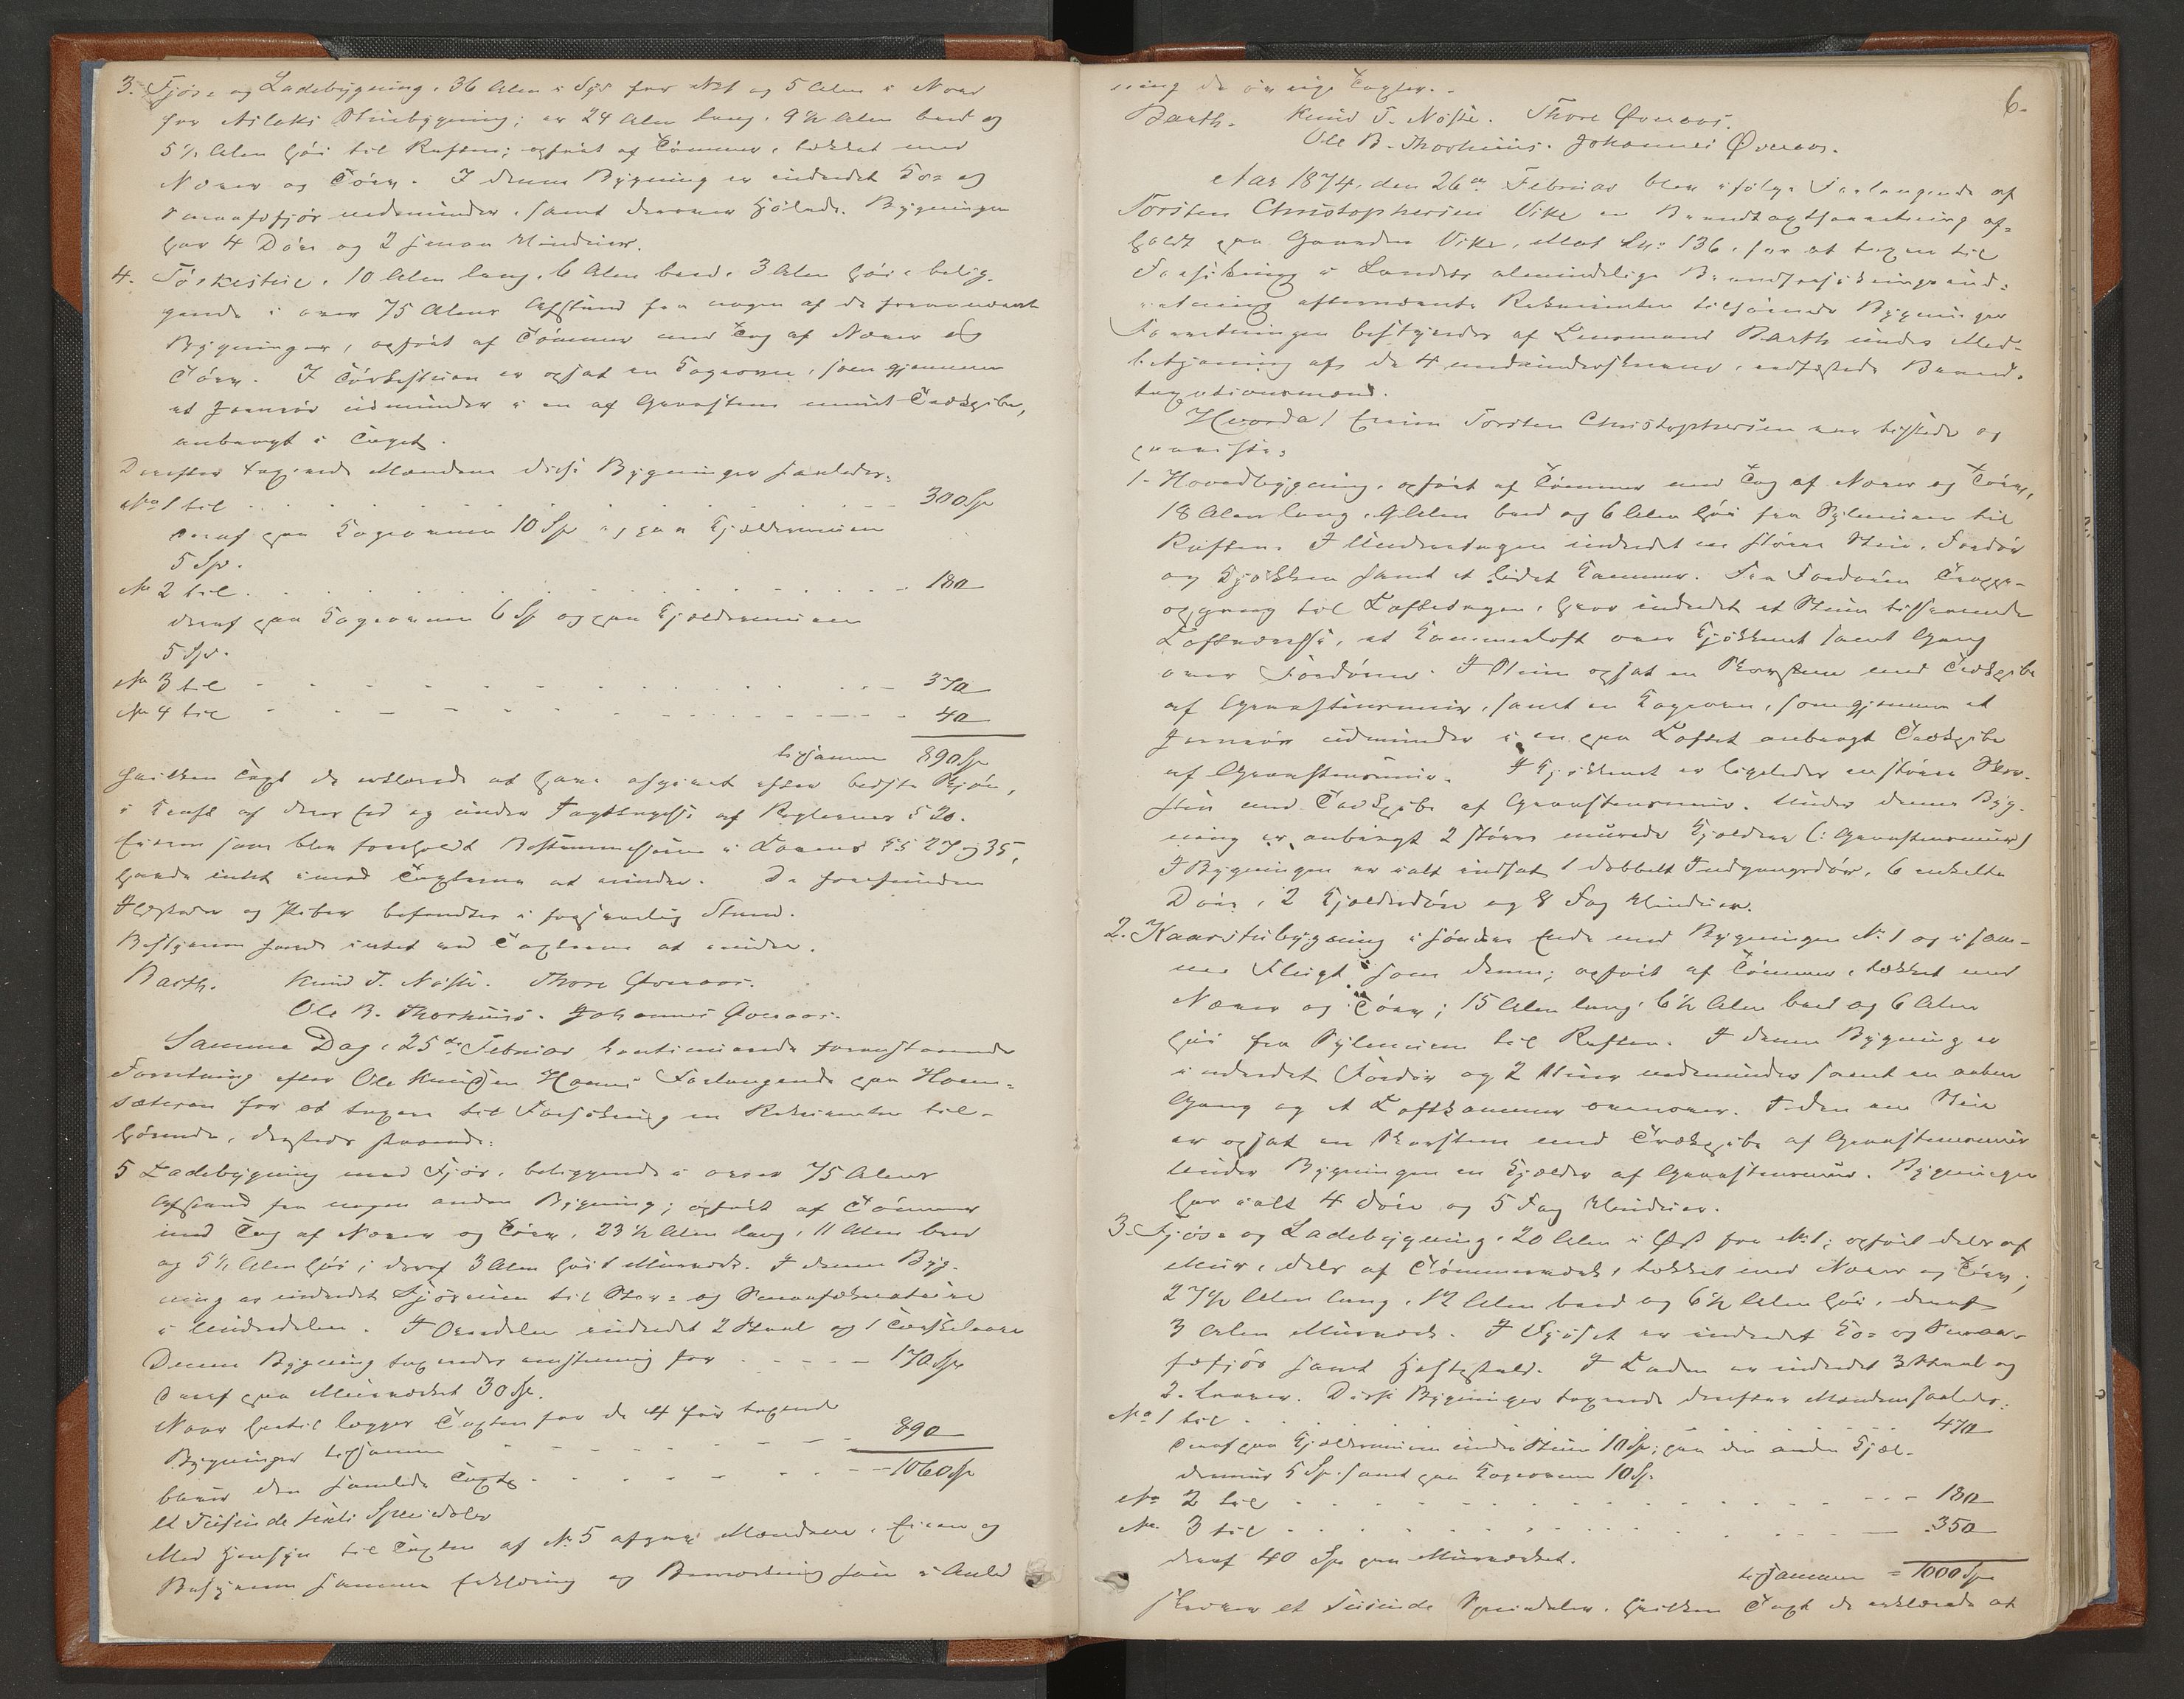 3. Fjøs- og Ladebygning, 36 Alen i Syd for No1 og 5 Alen i Nord
for Aslaks Stuebygning; er 24 Alen lang, 9½ Alen bred og
5½ Alen høi til Raften; opført af Tømmer, tækket med
Næver og Törv. I denne Bygning er indredet Ko- og
Smaafæfjøs nedenunder, samt derover Hølade. Bygningen
har 4 Döre og 2 smaa Vinduer.
4. Tørkestue, 10 Alen lang, 6 Alen bred, 3 Alen høi, belig-
gende i over 75 Alens Afstand fra nogen af de forannævnte
Bygninger, opført af Tömmer med Tag af Næver og
Törv. I Törkestuen er opsat en Kogeovn, som gjennem
et Jernrör udmunder i en af Graasteen muret Trækpibe,
anbragt i Taget.
Derefter taxerede Mændene disse Bygninger saaledes:
No 1 til 300 Sp
deraf paa Kogeovnen 10 Sp og paa Kjeldermuren
5 Sp.
No 2 til 180
deraf paa Kogeovnen 6 Sp og paa Kjeldermuren
5 Sp.
No 3 til 370
No 4 til 40
tilsammen 890 Sp
hvilken Taxt de erklærede at have afgivet efter bedste Skjön,
i Kraft af deres Ed og under Iagttagelse af Reglerne § 20.
Eieren som blev foreholdt Bestemmelserne i Lovens §§ 27 og 35,
havde intet imod Taxterne at erindre. De forefundne
Ildsteder og Piber befandtes i forsvarlig Stand.
Bestyreren fandt intet ved Taxterne at erindre.
Barth. Knud T. Nöste. Thore Øveraas.
Ole B. Thorhuus. Johannes Øveraas.
Samme Dag, 25de Februar kontinuerede foranstaaende
Forretning efter Ole Knudsen Hoems Forlangende paa Hoem-
sæteren for at taxere til Forsikring en Rekvirenten til-
hörende, dersteds staaende:
5 Ladebygning med Fjös, beliggende i over 75 Alens
Afstand fra nogen anden Bygning; opført af Tömmer
med Tag af Næver og Törv, 23½ Alen lang, 11 Alen bred
og 5½ Alen høi; deraf 3 Alen høit Murværk. I denne Byg-
ning er indredet Fjösrum til Stor- og Smaafækreature
i Underdelen. I Overdelen indredet 2 Staal og 1 Tærskelaave
Denne Bygning taxeredes enstemmig for 170 Sp
deraf paa Murværket 30 Sp.
Naar hertil lægges Taxten for de 4 før taxerede
Bygninger tilsammen 890
bliver den samlede Taxt 1060 Sp
et Tusinde sexti Speciedaler
Med Hensyn til Taxten af No 5 afgav Mændene, Eieren og
Bestyreren samme Erklæring og Bemærkning som i Anled
6.
ning de øvrige Taxter.
Barth. Knud T. Nöste. Thore Øveraas.
Ole B. Thorhuus. Johannes Øveraas.
Aar 1874, den 26de Februar blev ifölge Forlangende af
Torsten Christophersen Vike en Brandtaxtforretning af-
holdt paa Gaarden Vike, Mat. Lr: 136, for at taxere til
Forsikring i Landets almindelige Brandforsikringsind-
retning efternævnte Rekvirenten tilhörende Bygninger
Forretningen bestyredes af Lensmand Barth under Med-
betjening af de 4 medunderskrevne, edfæstede Brand-
taxationsmænd.
Hvorda! Eieren Torsten Christophersen var tilstede og
paaviste:
1. Hovedbygning, opført af Tömmer med Tag af Næver og Törv,
18 Alen lang, 9 Alen bred og 6 Alen høi fra Sylmuren til
Raften. I Underetagen indredet en större Stue, Fordör
og Kjökken samt et lidet Kammer. Fra Fordören Trappe-
opgang til Loftsetagen, hvor indredet et Stuen tilsvarende
Loftsværelse, et Kammerloft over Kjökkenet samt Gang
over Fordören. I Stuen opsat en Skorsteen med Trækpibe
af Graasteensmur, samt en Kogeovn, som gjennem et
Jernrör udmunder i en paa Loftet anbragt Trækpibe
af Graasteensmur. I Kjökkenet er ligeledes en större Skor-
sten med Trækpibe af Graasteensmur. Under denne Byg-
ning er anbragt 2 större murede Kjeldere (: Graasteensmur)
I Bygningen er ialt indsat 1 dobbelt Indgangsdör, 6 enkelte
Döre, 2 Kjelderdöre og 8 Fag Vinduer.
2. Kaarstubygning i söndre Ende med Bygningen No 1 og i sam-
me Flugt som denne; opført af Tömmer, tækket med
Næver og Törv; 15 Alen lang, 6½ Alen bred og 6 Alen
høi fra Sylmuren til Raften. I denne Bygning er
indredet Fordör og 2 Stuer nedenunder samt en aaben
Gang og et Loftkammer ovenover. I den ene Stue
er opsat en Skorsteen med Trækpibe af Graasteensmur
Under Bygningen en Kjelder af Graasteensmur. Bygningen
har ialt 4 Döre og 5 Fag Vinduer.
3. Fjøs- og Ladebygning, 20 Alen i Øst for No 1; opført dels af
Mur, dels af Tömmerværk, tækket med Næver og Törv;
27½ Alen lang, 12 Alen bred og 6½ Alen høi, deraf
3 Alen Murværk. I Fjøset er indredet Ko- og Smaa-
fæfjös samt Hestestald. I Laden er indredet 3 Staal og
2 Laaver. Disse Bygninger taxerede derefter Mændene saaledes:
No 1 til 470
deraf paa Kjeldermuren under Stuen 10 Sp; paa den anden Kjel-
dermur 5 Sp. samt paa Kogeovnen 10 Sp.
No 2 til 180
No 3 til 350
deraf 40 Sp paa Murværket.
tilsammen = 1000 Sp
skriver et Tusinde Speciedaler, hvilken Taxt de erklærede at